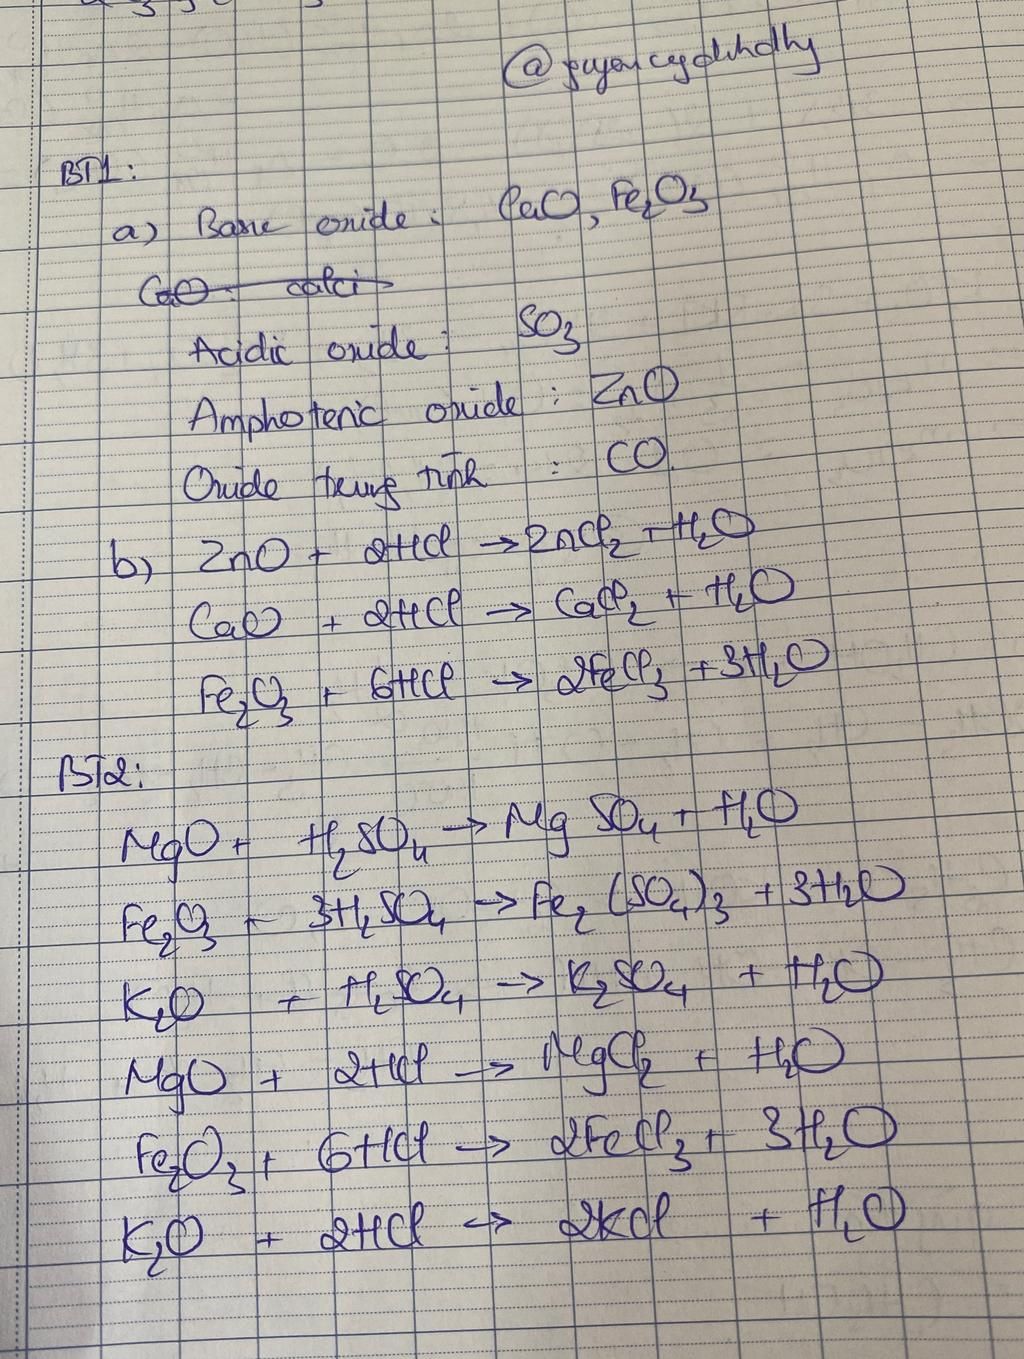 BT1:
a) Base oxide : CaO, Fe₂O₃
CaO: calci
Acidic oxide : SO₃
Amphoteric oxide : ZnO
Oxide trung tính : CO
b) ZnO + 2HCl → ZnCl₂ + H₂O
CaO + 2HCl → CaCl₂ + H₂O
Fe₂O₃ + 6HCl → 2FeCl₃ + 3H₂O
BT2:
MgO + H₂SO₄ → MgSO₄ + H₂O
Fe₂O₃ + 3H₂SO₄ → Fe₂(SO₄)₃ + 3H₂O
K₂O + H₂SO₄ → K₂SO₄ + H₂O
MgO + 2HCl → MgCl₂ + H₂O
Fe₂O₃ + 6HCl → 2FeCl₃ + 3H₂O
K₂O + 2HCl → 2KCl + H₂O